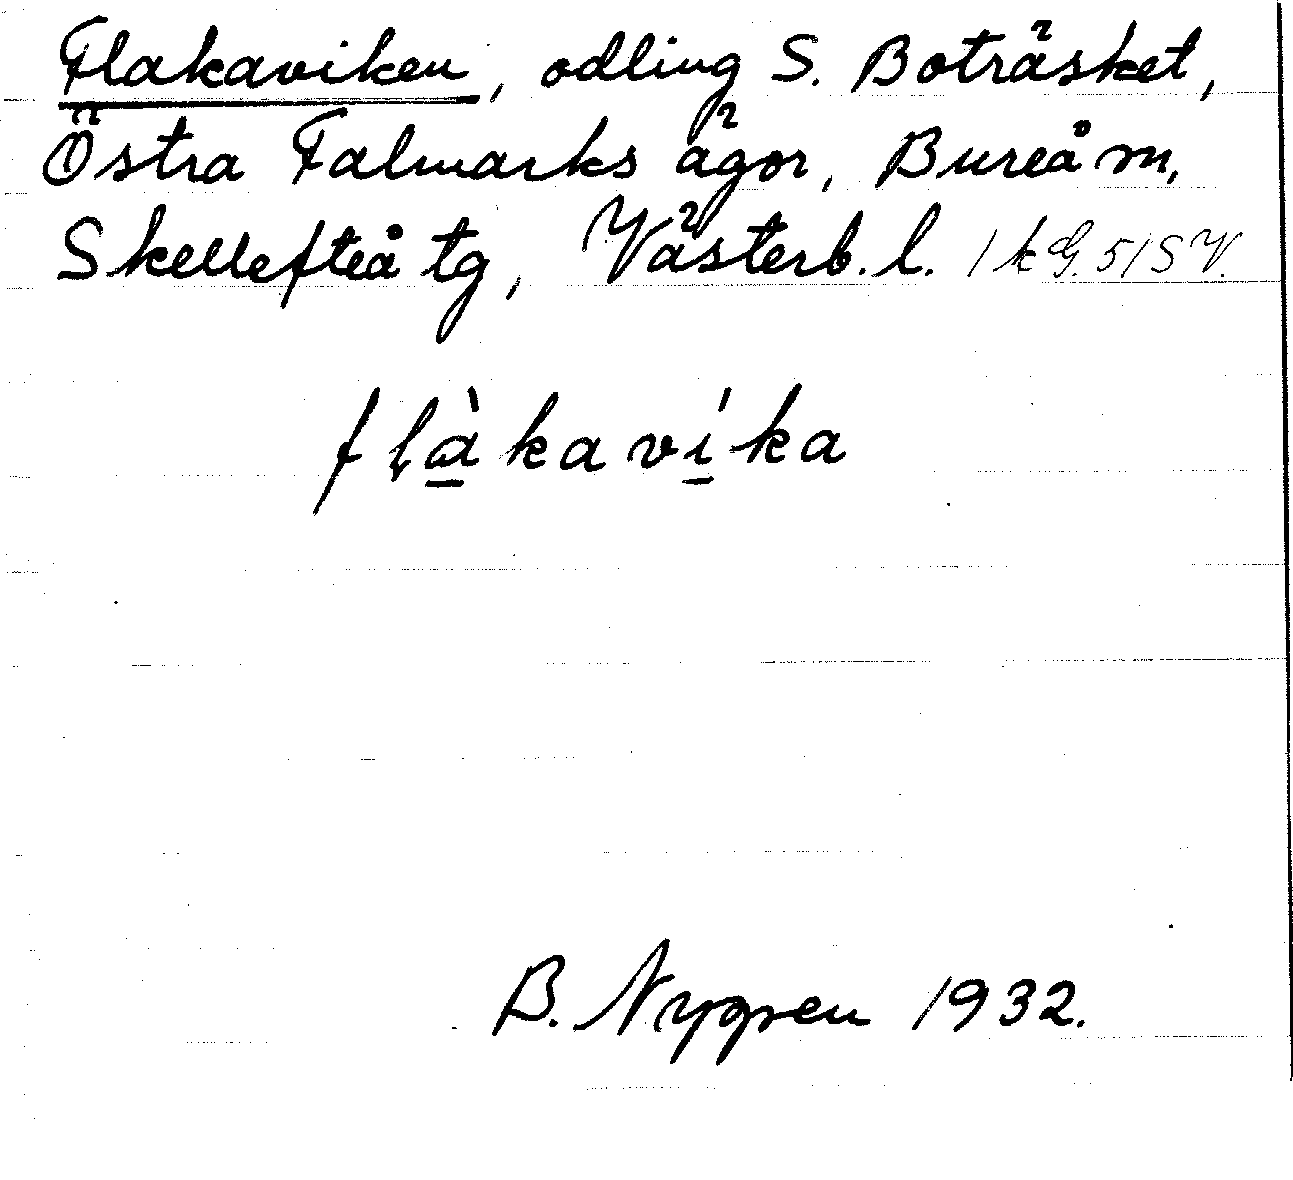 Flakaviken, odling S. Boträsket,
Östra Falmarks ägor, Bureå m,
Skellefteå tg, Västerb. l. 1 kG. 51 SV.
flàkavíka
B. Nygren 1932.